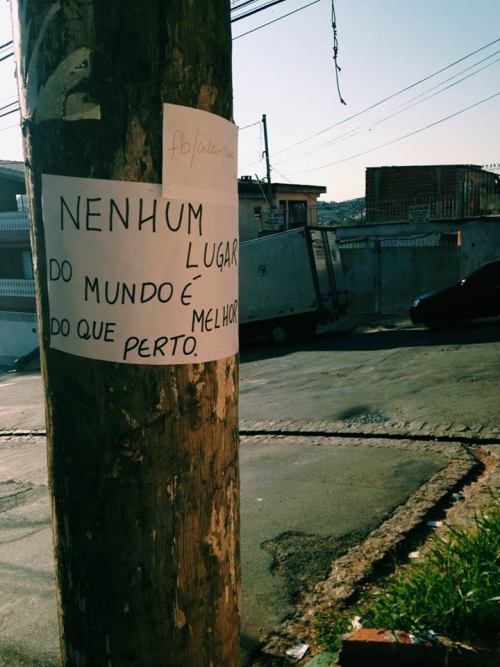 fb/
NENHUM
LUGAR
DO MUNDO É
MELHOR
DO QUE PERTO.